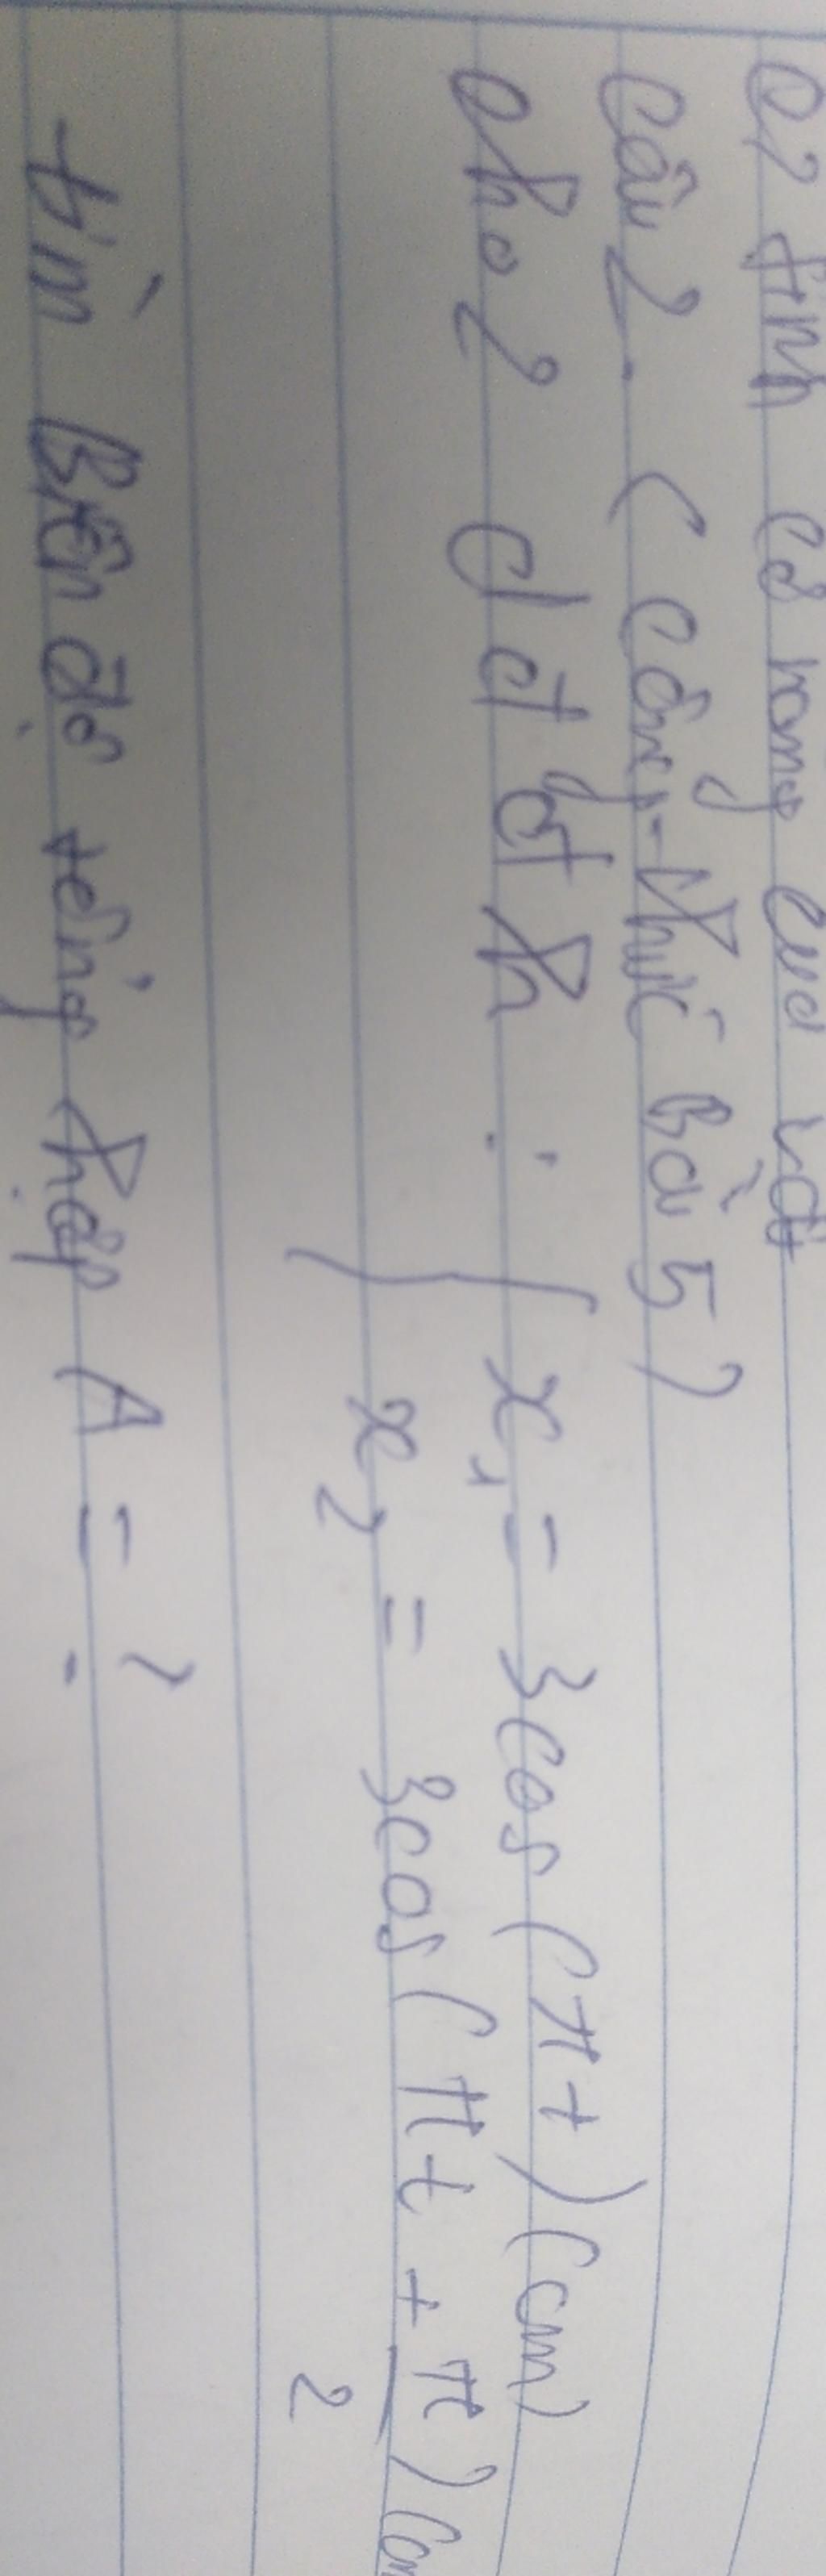 Tính cơ năng của vật
Câu 2. (Công thức Bài 5)
Cho 2 d đ đ h : { x₁ = 3cos(πt)(cm)
x₂ = 3cos(πt + π/2)(cm
tìm Biên độ tổng hợp A = ?